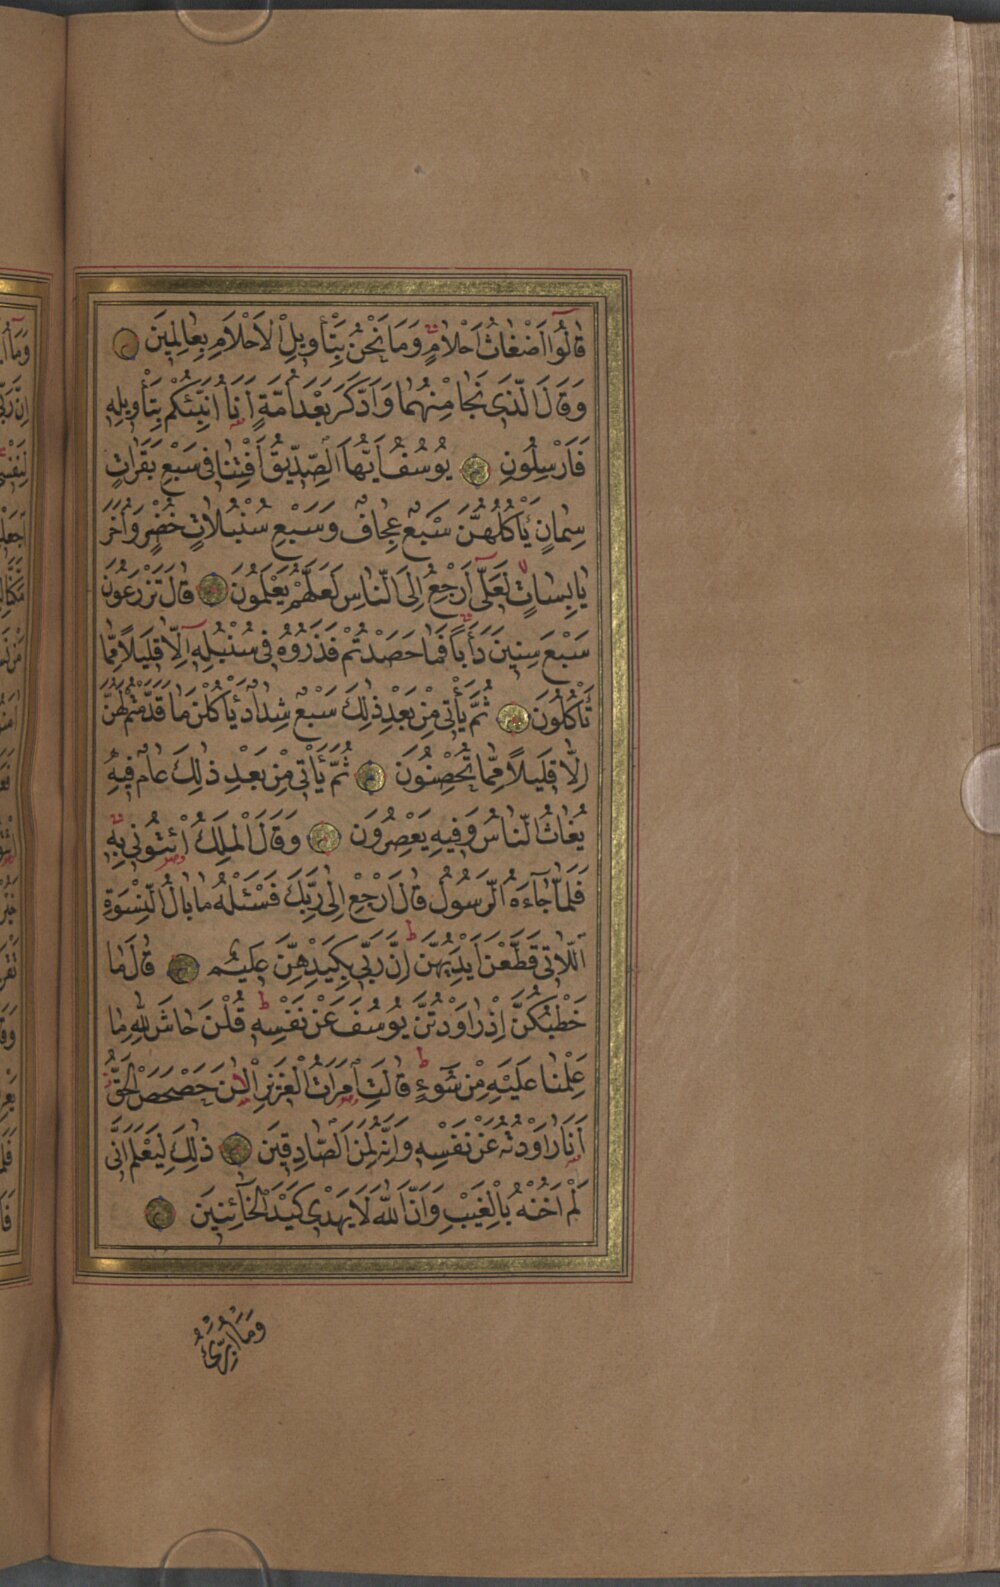 قَالُوٓا اَضْغَاثُ اَحْلَامٍ وَمَا نَحْنُ بِتَأْوِيلِ الْاَحْلَامِ بِعَالِمِينَ
وَقَالَ الَّذِى نَجَا مِنْهُمَا وَادَّكَرَ بَعْدَ اُمَّةٍ اَنَا۬ اُنَبِّئُكُمْ بِتَأْوِيلِهِ
فَاَرْسِلُونِ يُوسُفُ اَيُّهَا الصِّدِّيقُ اَفْتِنَا فِى سَبْعِ بَقَرَاتٍ
سِمَانٍ يَأْكُلُهُنَّ سَبْعٌ عِجَافٌ وَسَبْعِ سُنْبُلَاتٍ خُضْرٍ وَاُخَرَ
يَابِسَاتٍ لَعَلِّىٓ اَرْجِعُ اِلَى النَّاسِ لَعَلَّهُمْ يَعْلَمُونَ قَالَ تَزْرَعُونَ
سَبْعَ سِنِينَ دَأَبًا فَمَا حَصَدْتُمْ فَذَرُوهُ فِى سُنْبُلِهِٓ اِلَّا قَلِيلًا مِمَّا
تَأْكُلُونَ ثُمَّ يَأْتِى مِنْ بَعْدِ ذٰلِكَ سَبْعٌ شِدَادٌ يَأْكُلْنَ مَا قَدَّمْتُمْ لَهُنَّ
اِلَّا قَلِيلًا مِمَّا تُحْصِنُونَ ثُمَّ يَأْتِى مِنْ بَعْدِ ذٰلِكَ عَامٌ فِيهِ
يُغَاثُ النَّاسُ وَفِيهِ يَعْصِرُونَ وَقَالَ الْمَلِكُ ائْتُونِى بِهِ
فَلَمَّا جَآءَهُ الرَّسُولُ قَالَ ارْجِعْ اِلٰى رَبِّكَ فَسْئَلْهُ مَا بَالُ النِّسْوَةِ
الّٰتِى قَطَّعْنَ اَيْدِيَهُنَّ اِنَّ رَبِّى بِكَيْدِهِنَّ عَلِيمٌ قَالَ مَا
خَطْبُكُنَّ اِذْ رَاوَدْتُنَّ يُوسُفَ عَنْ نَفْسِهِ قُلْنَ حَاشَ لِلّٰهِ مَا
عَلِمْنَا عَلَيْهِ مِنْ سُوٓءٍ قَالَتِ امْرَاَتُ الْعَزِيزِ الْاٰنَ حَصْحَصَ الْحَقُّ
اَنَا۬ رَاوَدْتُهُ عَنْ نَفْسِهِ وَاِنَّهُ لَمِنَ الصَّادِقِينَ ذٰلِكَ لِيَعْلَمَ اَنِّى
لَمْ اَخُنْهُ بِالْغَيْبِ وَاَنَّ اللّٰهَ لَا يَهْدِى كَيْدَ الْخَآئِنِينَ
وَمَٓا اُبَرِّئُ